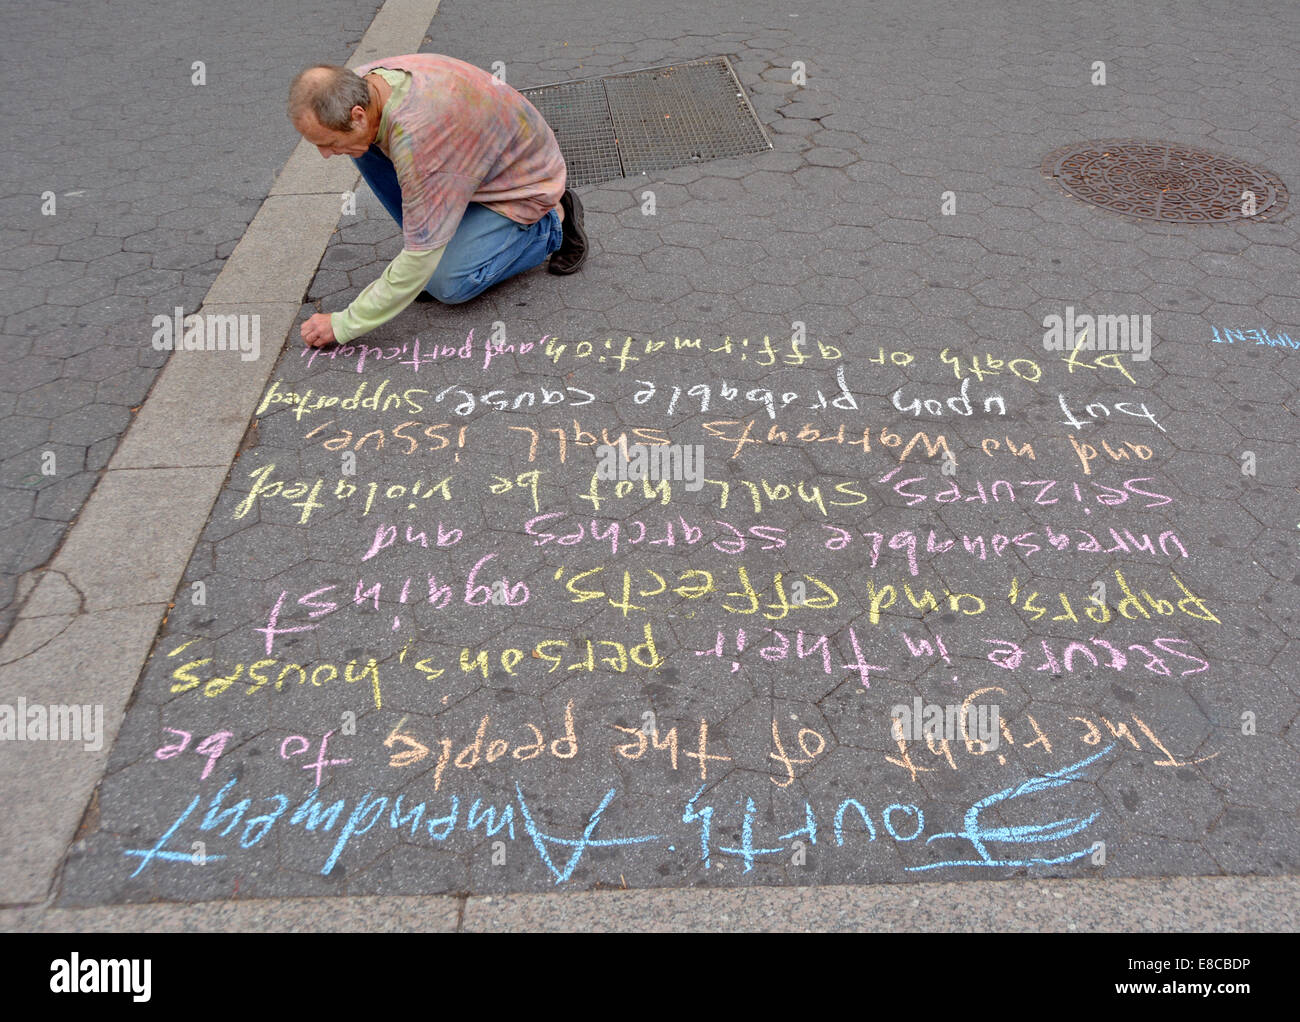 Fourth Amendment
The right of the people to be
secure in their persons, houses,
papers, and effects, against
unreasonable searches and
seizures, shall not be violated,
and no Warrants shall issue,
but upon probable cause, supported
by Oath or affirmation, and particularly
alamy
alamy
Image ID: E8CBDP
www.alamy.com